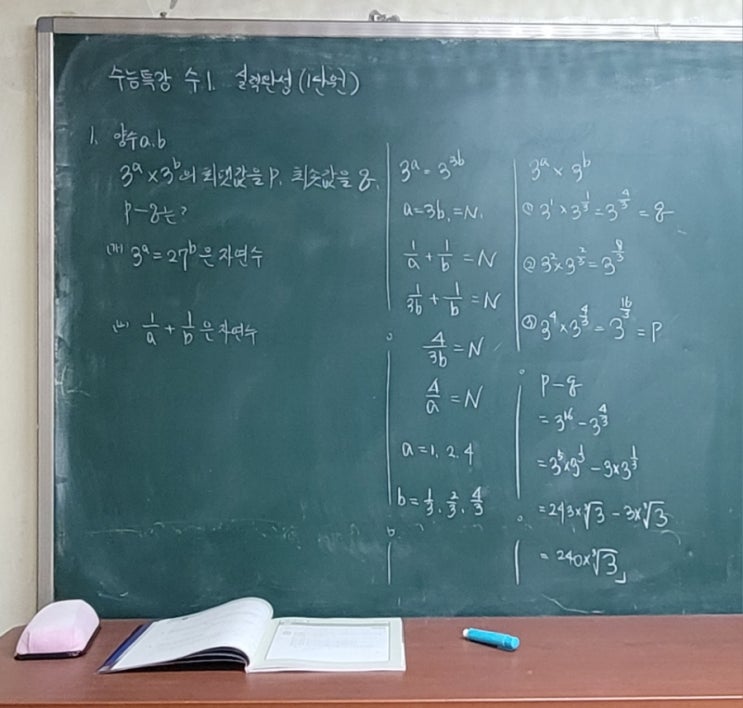 수능특강 수1. 실력완성 (1단원)
1. 양수 a.b
3ᵃ × 3ᵇ의 최댓값을 P. 최솟값을 q.
P-q는?
(가) 3ᵃ = 27ᵇ은 자연수
(나) 1/a + 1/b 은 자연수
3ᵃ = 3³ᵇ
a = 3b. = N.
1/a + 1/b = N
1/3b + 1/b = N
4/3b = N
4/a = N
a = 1. 2. 4
b = 1/3. 2/3. 4/3
3ᵃ × 3ᵇ
① 3^1 × 3^(1/3) = 3^(4/3) = q
② 3^2 × 3^(2/3) = 3^(8/3)
③ 3^4 × 3^(4/3) = 3^(16/3) = P
P-q
= 3^16 - 3^(4/3)
= 3^5 × 3^(1/3) - 3 × 3^(1/3)
= 243 × ³√3 - 3 × ³√3
= 240 × ³√3